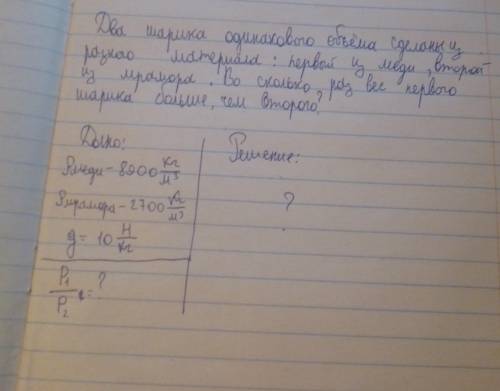 Два шарика одинакового объёма сделаны из
разного материала: первый из меди, второй
из мрамора. Во сколько раз вес первого
шарика больше, чем второго?
Дано:
Pмеди - 8900 кг/м³
Pмрамора - 2700 кг/м³
g = 10 Н/кг
P₁/P₂ = ?
Решение:
?